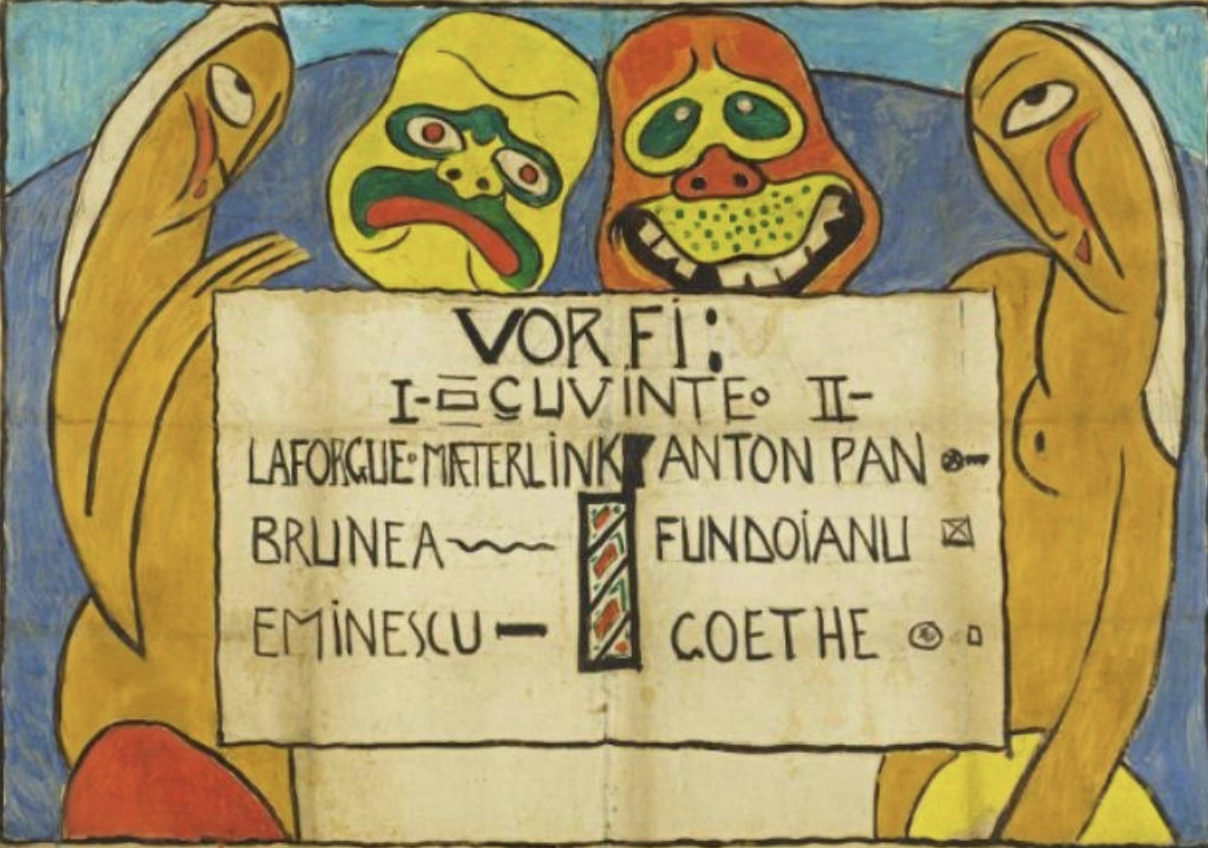 VOR FI:
I- CUVINTE II-
LAFORGUE MÆTERLINK ANTON PAN
BRUNEA FUNDOIANU
EMINESCU GOETHE